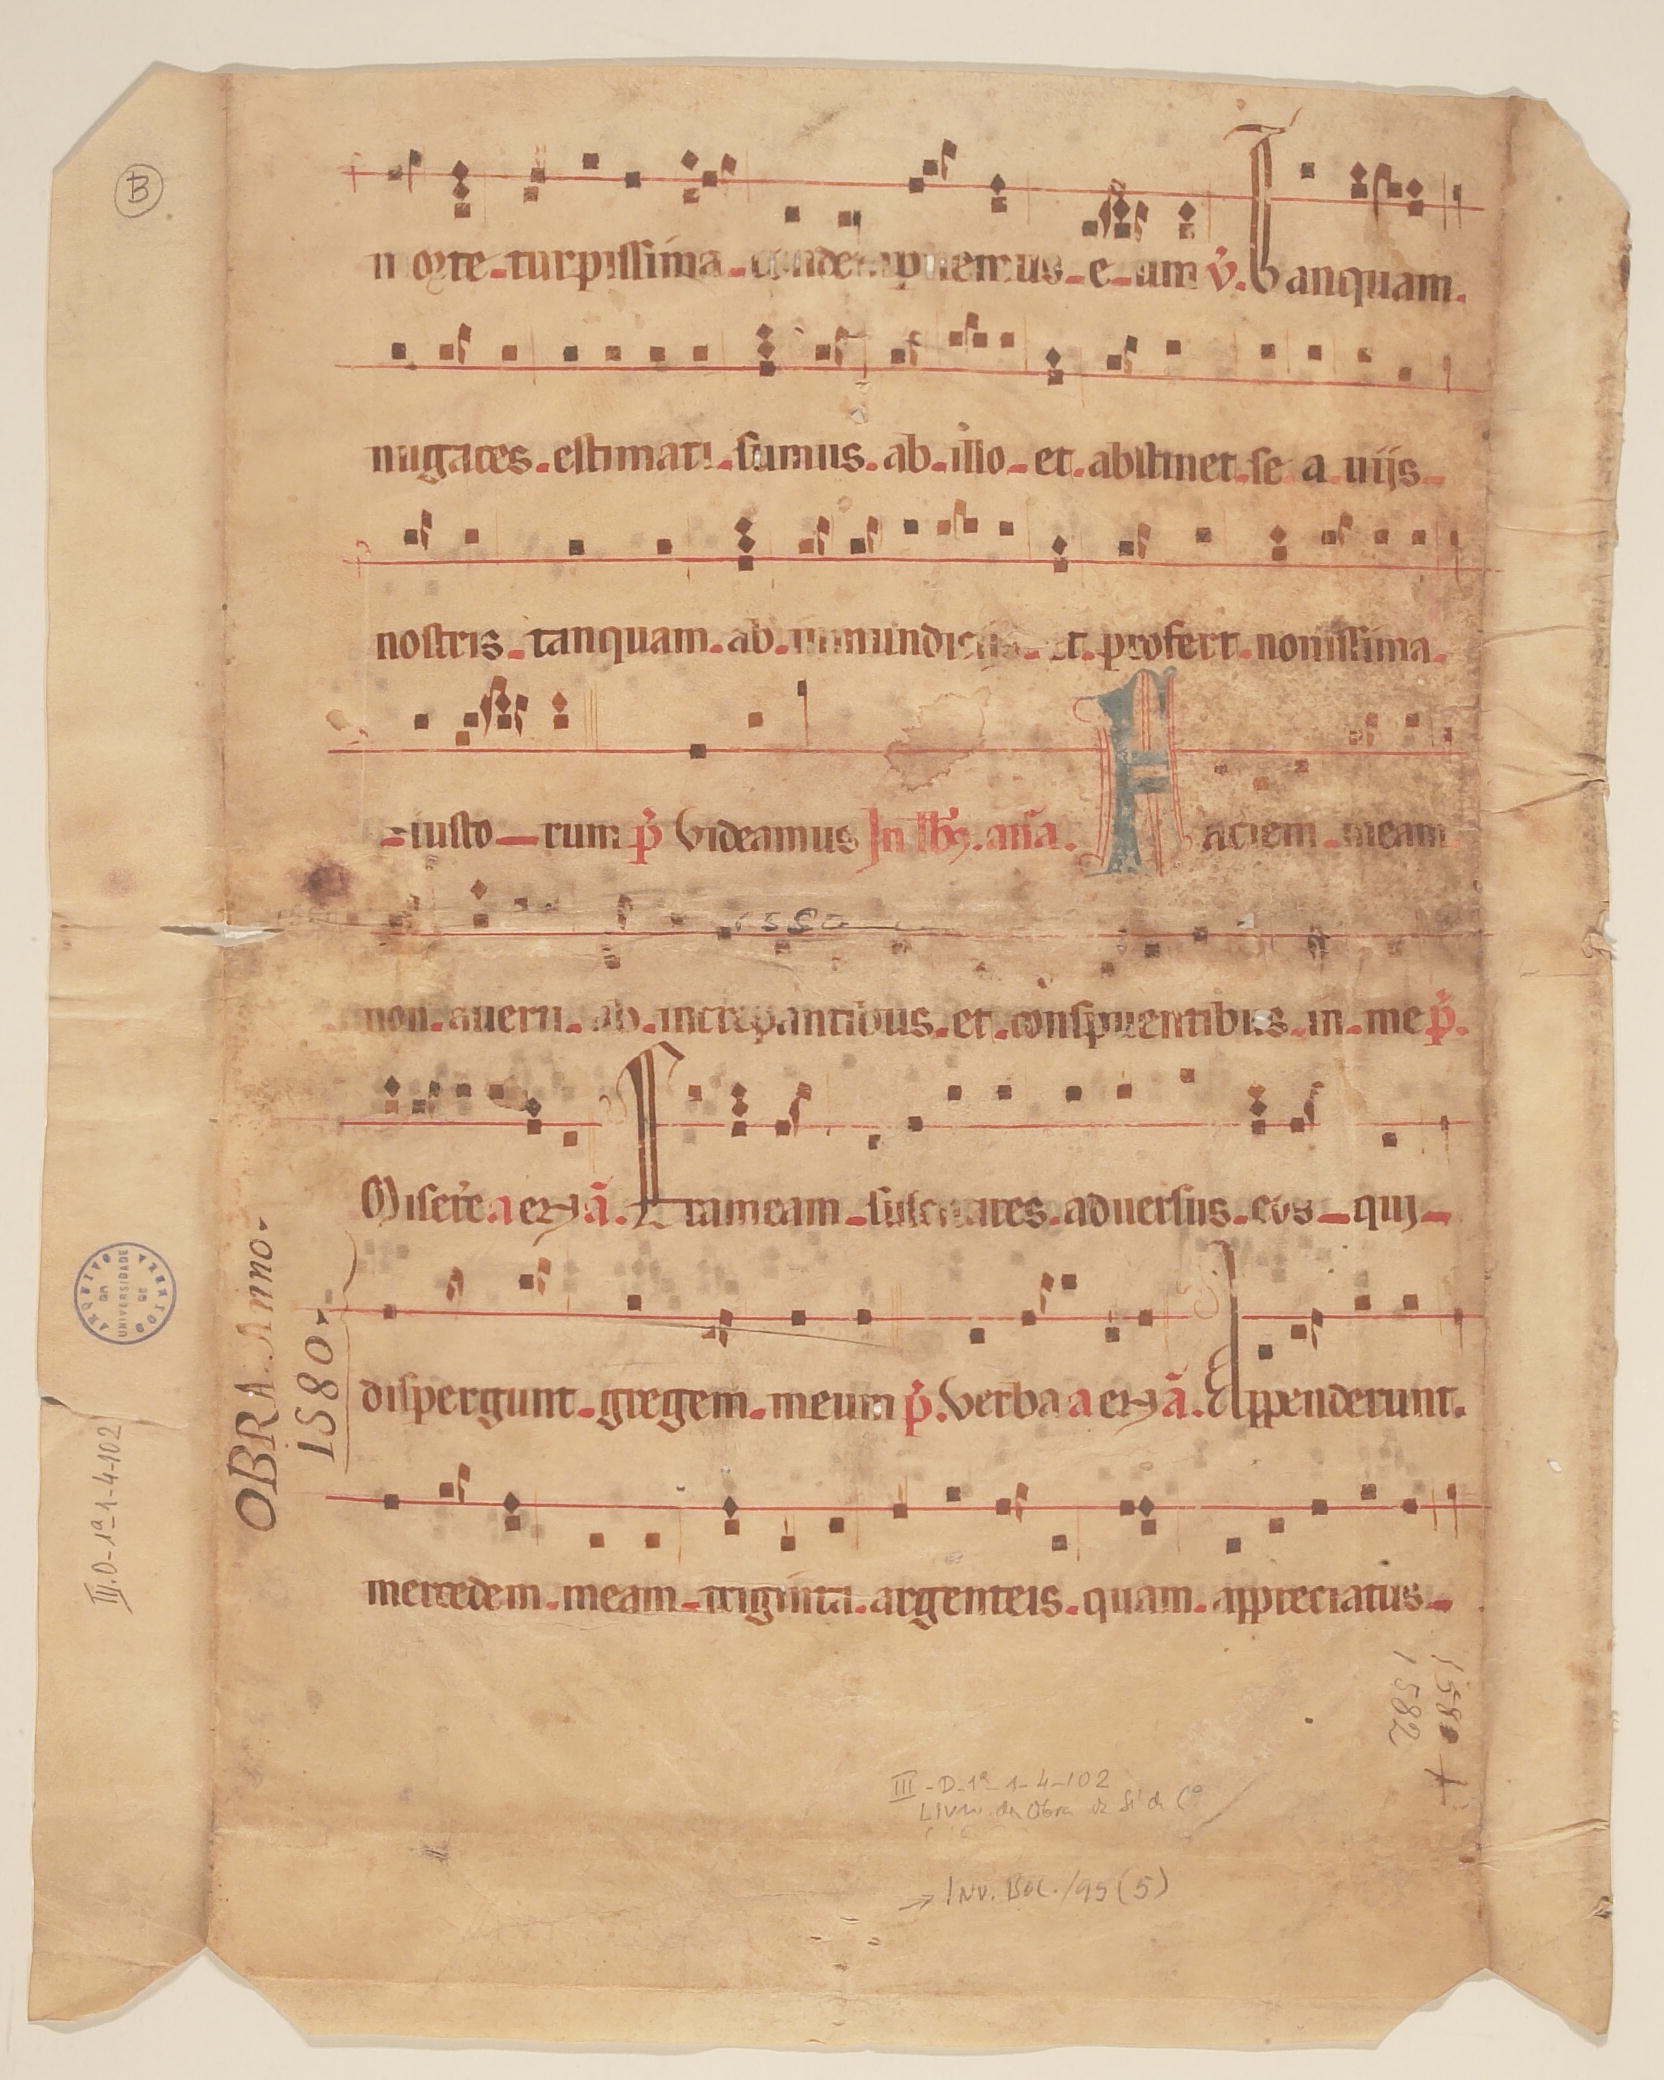 B
morte turpissima condempnemus e um v̄. Tanquam.
nugaces. estimati. sumus. ab. illo. et. abstinet. se a uijs
nostris. tanquam. ab. inmundicijs. et. profert. nouissima.
iusto rum p̄ Videamus In an̄a. Faciem meam
1580
non. auerti. ab. increpantibus. et. conspuentibus. in. me p̄.
Misere a erz ā. Frameam suscitares. aduersus. eos qui
dispergunt. gregem. meum p̄. Verba a erz ā. Appenderunt.
mercedem. meam triginta. argenteis. quam. appreciatus
OBRA. Anno.
1580
ARQUIVO DA UNIVERSIDADE DE
III.D-1ª-1-4-102
1580
1582
III-D-1ª-1-4-102
Livro da Obra da Sé de Cª
→ Inv. /95 (5)